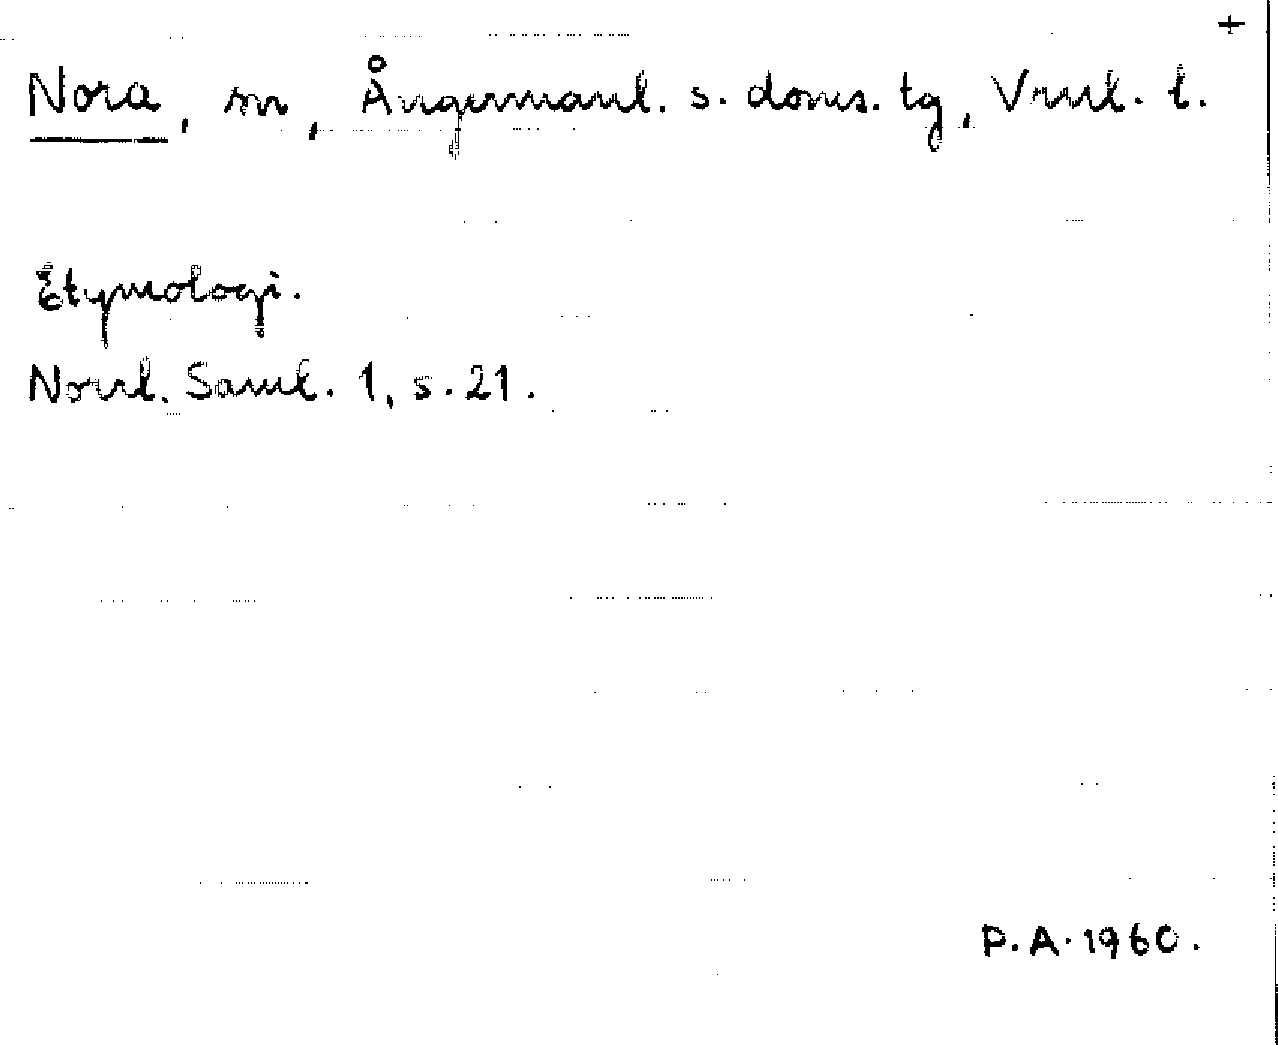 +
Nora, sn, Ångermanl. s. doms. tg, Vrnl. l.
Etymologi.
Norrl. Saml. 1, s. 21.
P.A. 1960.